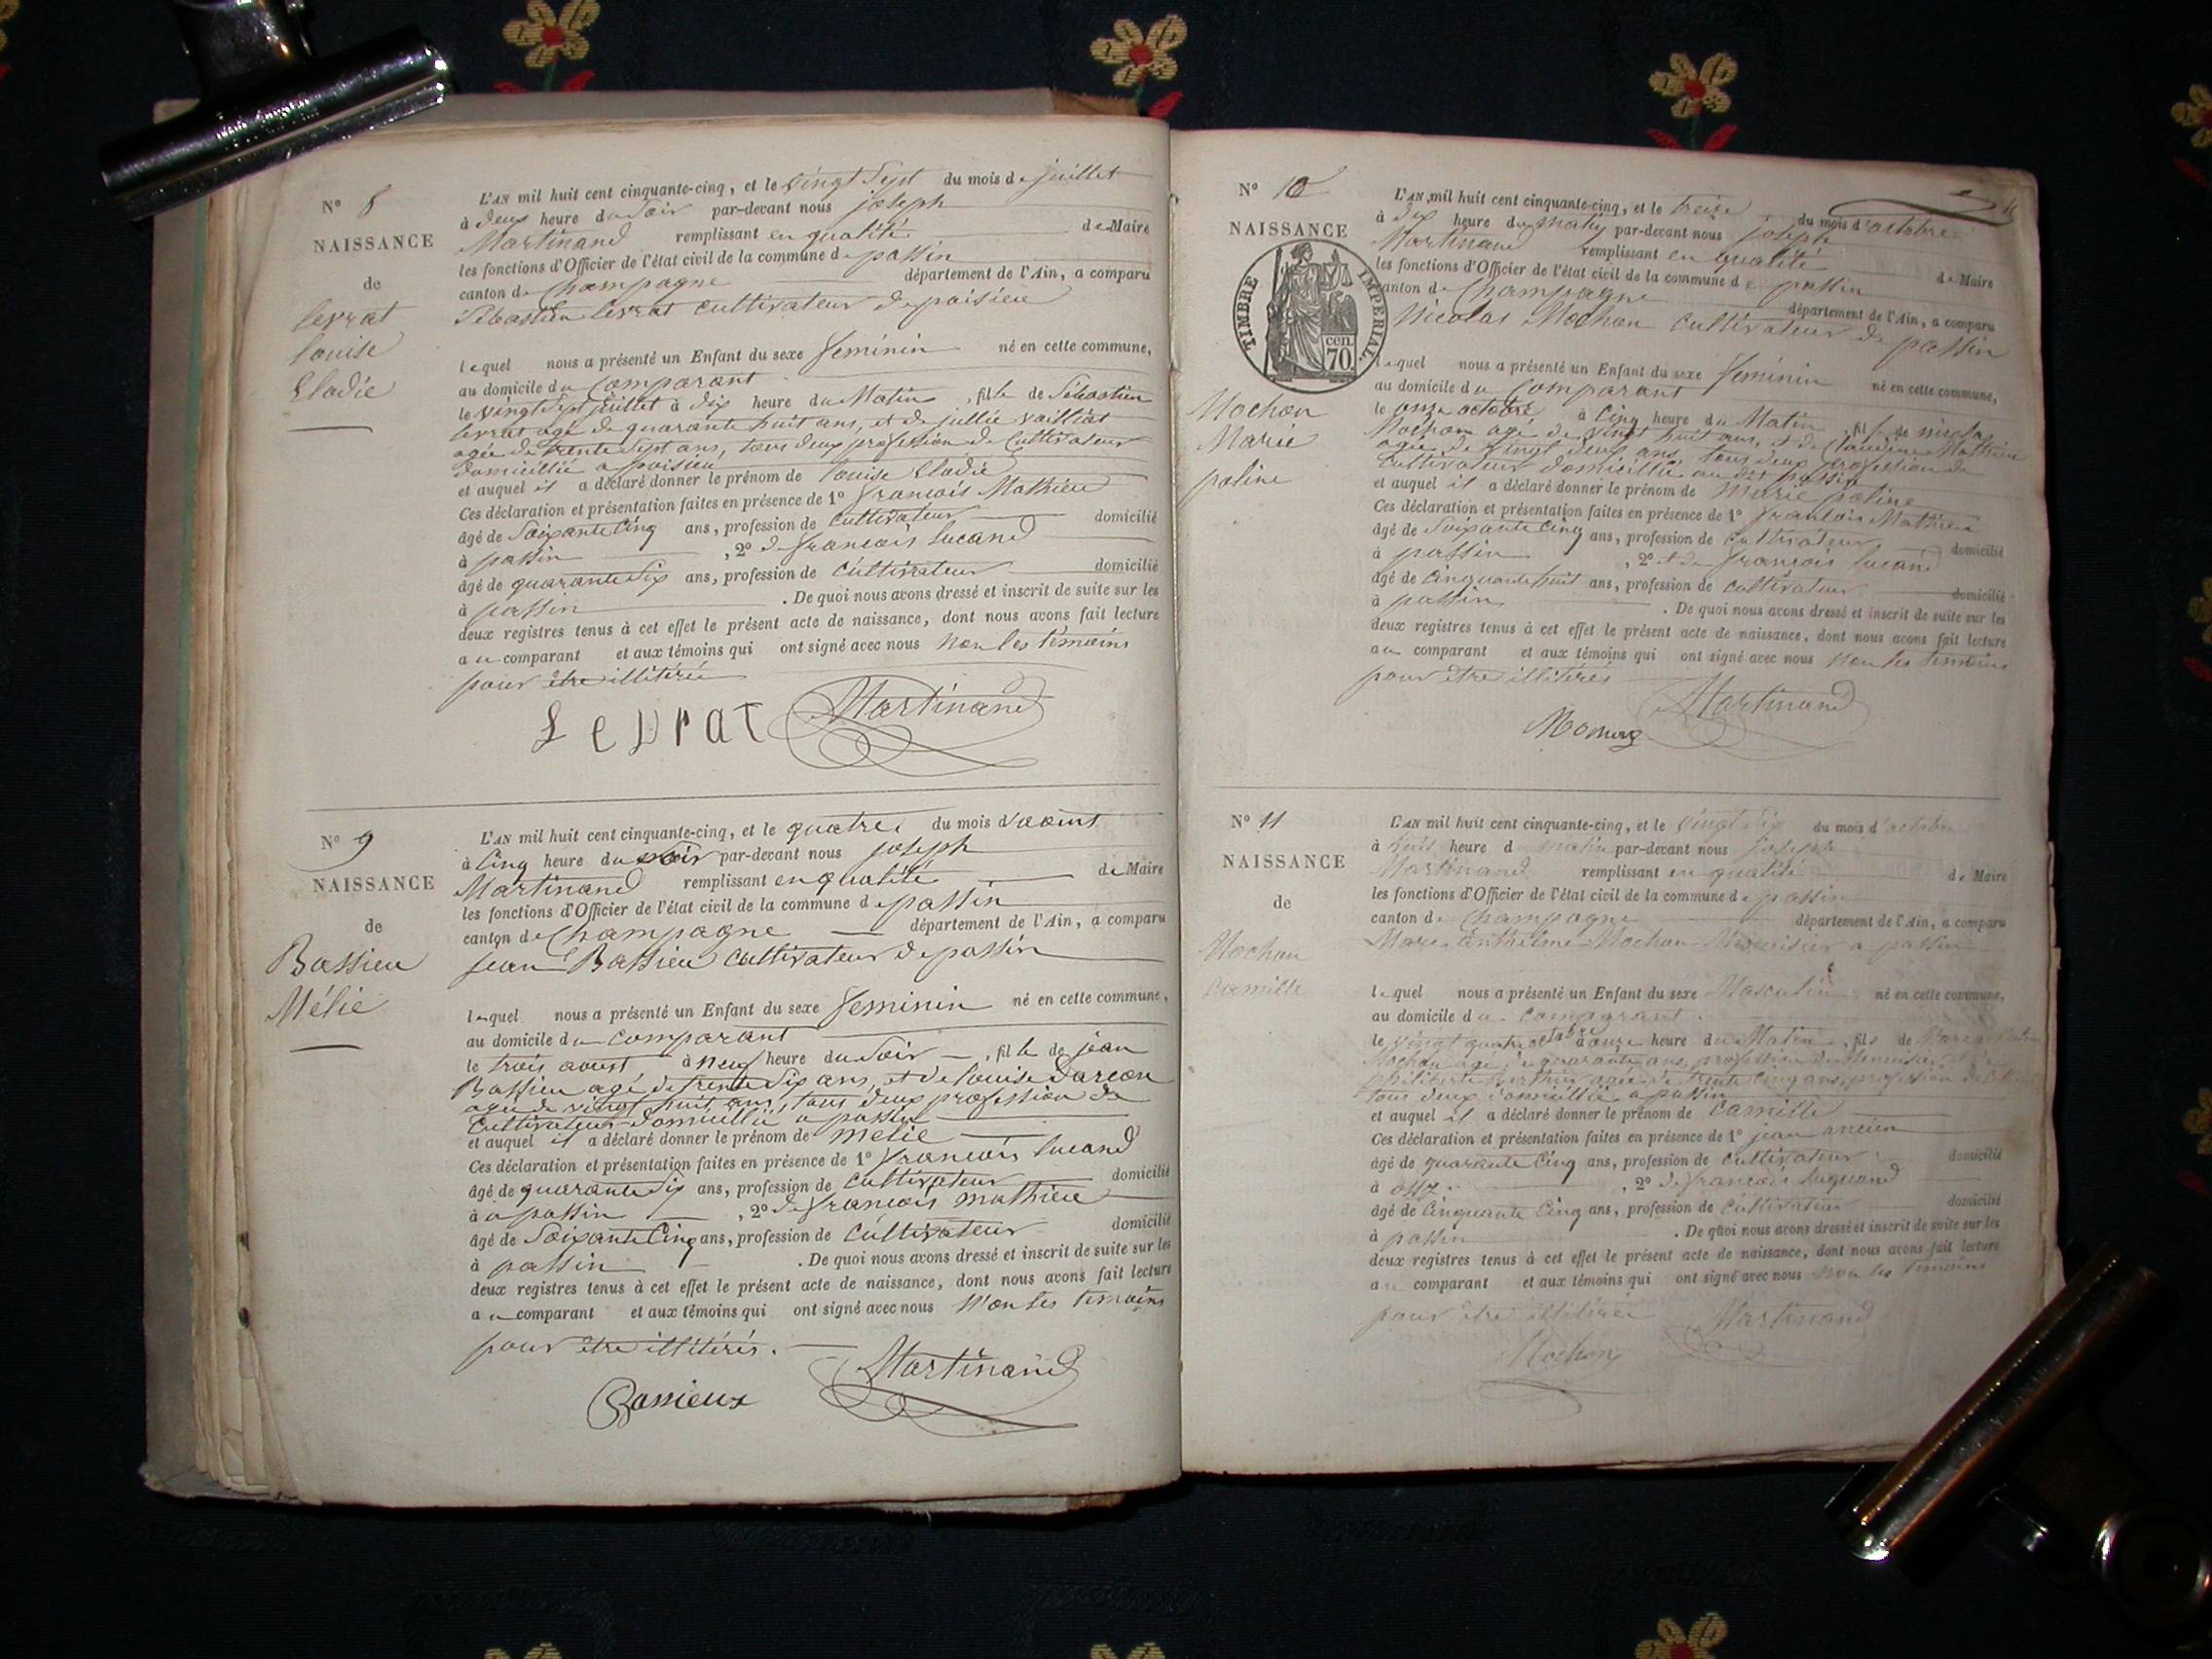 N° 8
NAISSANCE
de
Levrat
Louise
Elodie
L'AN mil huit cent cinquante-cinq, et le vingt Sept du mois de juillet
à deux heure du Soir par-devant nous joseph
Martinand remplissant en qualité de Maire
les fonctions d'Officier de l'état civil de la commune de passin
canton de Champagne département de l'Ain, a comparu
Sébastien Levrat cultivateur de poisieu
lequel nous a présenté un Enfant du sexe feminin né en cette commune,
au domicile du Comparant
le vingt Sept juillet à dix heure du Matin, fille de Sébastien
Levrat agé de quarante huit ans, et de jullie
agée de trente Sept ans, tous deux profession de Cultivateur
domicillié a poisieu
et auquel il a déclaré donner le prénom de Louise Elodie
Ces déclaration et présentation faites en présence de 1° françois Mathieu
âgé de Soixante Cinq ans, profession de cultivateur domicilié
à passin, 2° de françois Lucand
âgé de quarante Six ans, profession de cultivateur domicilié
à passin. De quoi nous avons dressé et inscrit de suite sur les
deux registres tenus à cet effet le présent acte de naissance, dont nous avons fait lecture
au comparant et aux témoins qui ont signé avec nous Non les témoins
pour être illitérés
Levrat Martinand
N° 9
NAISSANCE
de
Bassieu
Mélie
L'AN mil huit cent cinquante-cinq, et le quatre du mois d'aoust
à Cinq heure du Soir par-devant nous joseph
Martinand remplissant en qualité de Maire
les fonctions d'Officier de l'état civil de la commune de passin
canton de Champagne département de l'Ain, a comparu
jean Bassieu cultivateur de passin
lequel nous a présenté un Enfant du sexe feminin né en cette commune,
au domicile du comparant
le trois aoust à neuf heure du Soir, fille de jean
Bassieu agé de trente Six ans, et de Louise Darcon
agée de vingt huit ans, tous deux profession de
Cultivateur domicillié a passin
et auquel il a déclaré donner le prénom de Mélie
Ces déclaration et présentation faites en présence de 1° françois Lucand
âgé de quarante Six ans, profession de Cultivateur domicilié
à a passin, 2° de françois mathieu
âgé de Soixante Cinq ans, profession de Cultivateur domicilié
à passin. De quoi nous avons dressé et inscrit de suite sur les
deux registres tenus à cet effet le présent acte de naissance, dont nous avons fait lecture
au comparant et aux témoins qui ont signé avec nous Non les temoins
pour être illitérés.
Bassieux Martinand
N° 10
NAISSANCE
TIMBRE IMPERIAL.
cen. 70.
Mochon
Marie
poline
L'AN mil huit cent cinquante-cinq, et le treize du mois d'octobre
à dix heure du matin par-devant nous joseph
Martinand remplissant en qualité de Maire
les fonctions d'Officier de l'état civil de la commune de passin
canton de Champagne département de l'Ain, a comparu
Nicolas Mochon Cultivateur de passin
lequel nous a présenté un Enfant du sexe feminin né en cette commune,
au domicile du Comparant
le onze octobre à Cinq heure du Matin, fille de nicolas
Mochon agé de vingt huit ans, et de Claudine Mathieu
agée de vingt deux ans, tous deux profession de
Cultivateur domicillié au dit passin
et auquel il a déclaré donner le prénom de Marie poline
Ces déclaration et présentation faites en présence de 1° françois Mathieu
âgé de Soixante Cinq ans, profession de cultivateur domicilié
à passin, 2° et de françois Lucand
âgé de Cinquante huit ans, profession de cultivateur domicilié
à passin. De quoi nous avons dressé et inscrit de suite sur les
deux registres tenus à cet effet le présent acte de naissance, dont nous avons fait lecture
au comparant et aux témoins qui ont signé avec nous Non les temoins
pour être illitérés
Martinand
N° 11
NAISSANCE
de
Mochon
Camille
L'AN mil huit cent cinquante-cinq, et le vingt Six du mois d'octobre
à heure d matin par-devant nous joseph
Martinand remplissant en qualité de Maire
les fonctions d'Officier de l'état civil de la commune de passin
canton de Champagne département de l'Ain, a comparu
Marc Anthelme Mochon Menuisier a passin
lequel nous a présenté un Enfant du sexe Masculin né en cette commune,
au domicile du comparant.
le vingt quatre octobre à onze heure du Matin, fils de Marc
Mochon agé de quarante ans, profession de Menuisier
philiberte agée de trente Cinq ans, profession de
tous deux domicillié a passin
et auquel il a déclaré donner le prénom de Camille
Ces déclaration et présentation faites en présence de 1° jean ancien
âgé de quarante Cinq ans, profession de cultivateur domicilié
à, 2° de françois Luquand
âgé de Cinquante Cinq ans, profession de Cultivateur domicilié
à passin. De quoi nous avons dressé et inscrit de suite sur les
deux registres tenus à cet effet le présent acte de naissance, dont nous avons fait lecture
au comparant et aux témoins qui ont signé avec nous Non les temoins
pour être illitérés Martinand
Mochon